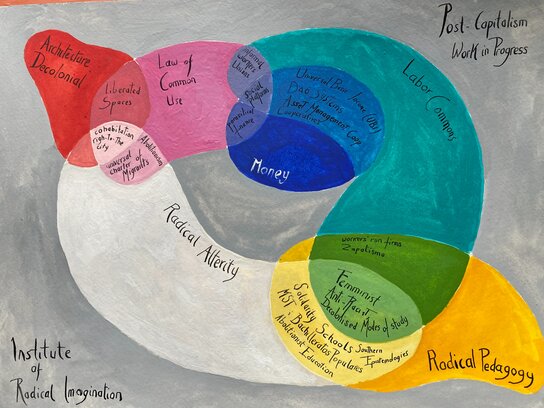 Post-Capitalism
Work in Progress
Architecture
Decolonial
Liberated
Spaces
Law of
Common
Use
Workers
Unions
Social
Platforms
Finance
Universal Basic Income (UBI)
DAO Systems
Asset Management Coop
Cooperatives
Money
Labor Commons
cohabitation
right-To-The
City
Abolitionism
universal
charter of
Migrants
Radical Alterity
workers' run firms
Zapatismo
Feminist
Anti-Racist
Decolonised Modes of study
Solidarity Schools
Southern
Epistemologies
MST; Bachilleratos Populares
Abolitionist
Education
Radical Pedagogy
Institute
of
Radical Imagination